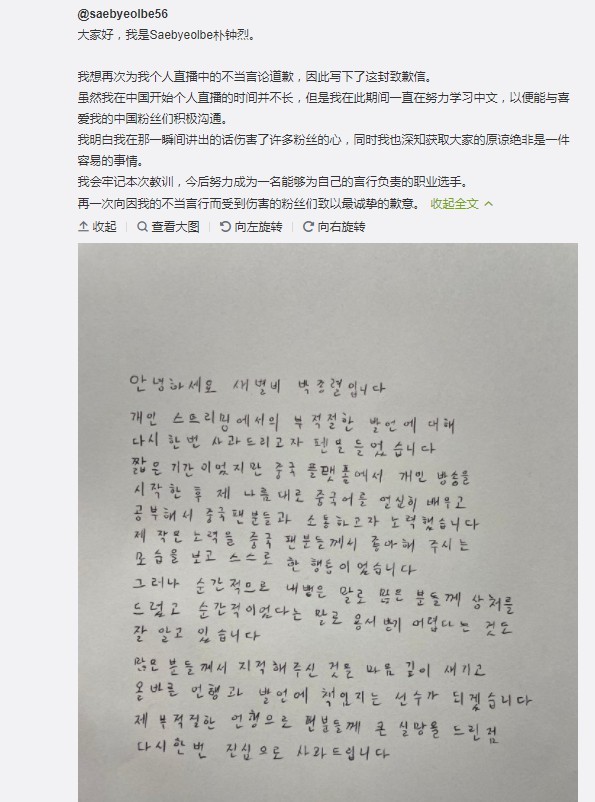 @saebyeolbe56
大家好，我是Saebyeolbe朴钟烈。
我想再次为我个人直播中的不当言论道歉，因此写下了这封致歉信。
虽然我在中国开始个人直播的时间并不长，但是我在此期间一直在努力学习中文，以便能与喜
爱我的中国粉丝们积极沟通。
我明白我在那一瞬间讲出的话伤害了许多粉丝的心，同时我也深知获取大家的原谅绝非是一件
容易的事情。
我会牢记本次教训，今后努力成为一名能够为自己的言行负责的职业选手。
再一次向因我的不当言行而受到伤害的粉丝们致以最诚挚的歉意。 收起全文
收起 查看大图 向左旋转 向右旋转
안녕하세요 새별비 박종렬입니다
개인 스트리밍에서의 부적절한 발언에 대해
다시 한번 사과드리고자 펜을 들었습니다
짧은 기간이었지만 중국 플랫폼에서 개인 방송을
시작한 후 제 나름대로 중국어를 열심히 배우고
공부해서 중국팬분들과 소통하고자 노력했습니다
제 작은 노력을 중국 팬분들께서 좋아해 주시는
모습을 보고 스스로 한 행동이었습니다
그러나 순간적으로 내뱉은 말로 많은 분들께 상처를
드렸고 순간적이었다는 말로 용서 받기 어렵다는 것도
잘 알고 있습니다
많은 분들께서 지적해주신 것들 마음 깊이 새기고
올바른 언행과 발언에 책임지는 선수가 되겠습니다
제 부적절한 언행으로 팬분들께 큰 실망을 드린점
다시한번 진심으로 사과드립니다